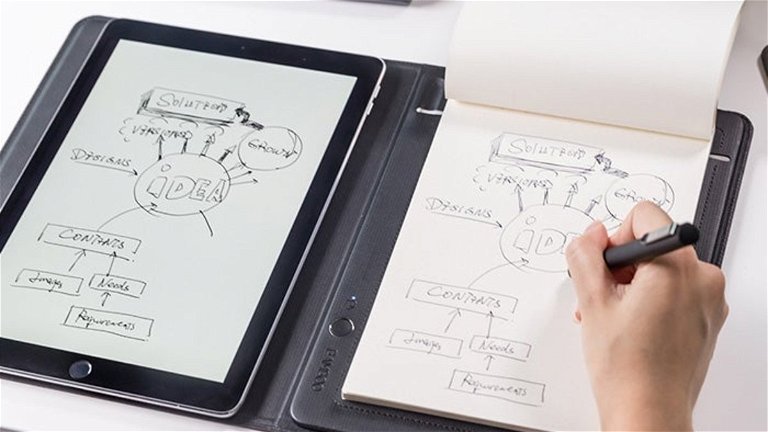 SOLUTIONS
VERSIONS
GROWN
DESIGNS
iDEA
CONTENTS
Images
Needs
Requirements
SOLUTIONS
VERSIONS
DESIGNS
iDE
CONTENTS
Images
Needs
Requirements